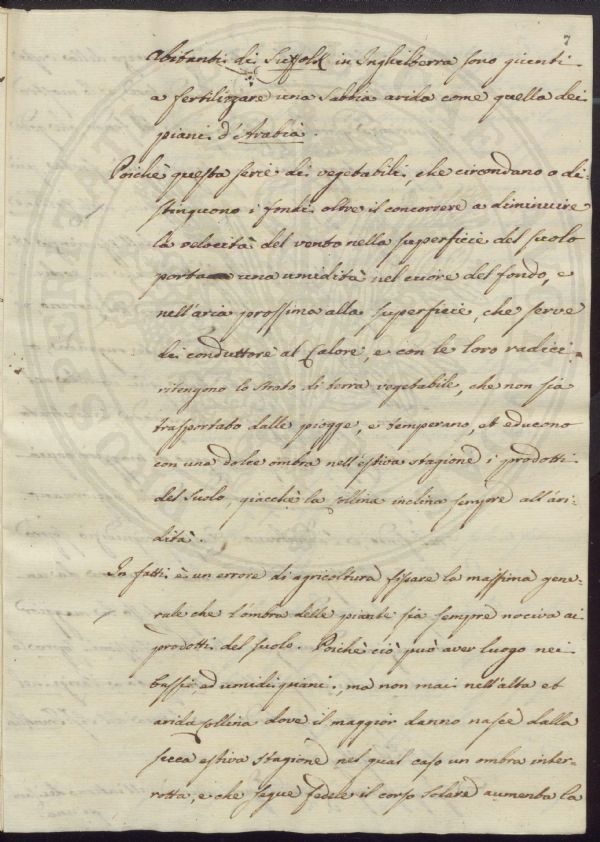 7
abitanti di Suffolk in Inghilterra sono giunti
a fertilizzare una sabbia arida come quella dei
piani d'Arabia.
Poichè questa serie di vegetabili, che circondano o di-
stinguono i fondi oltre il concorrere a diminuire
la velocità del vento nella superficie del suolo
porta una umidità nel cuore del fondo, e
nell'aria prossima alla superficie, che serve
di conduttore al Calore, e con le loro radici
ritengono lo strato di terra vegetabile, che non sia
trasportato dalle piogge, e temperano, et educono
con una dolce ombra nell'estiva stagione i prodotti
del Suolo, giacchè la collina inclina sempre all'ari-
dità.
In fatti è un errore di agricoltura fissare la massima gene-
rale che l'ombra delle piante sia sempre nociva ai
prodotti del suolo. Poichè ciò può aver luogo nei
bassi, ed umidi piani. ma non mai nell'alta et
arida collina dove il maggior danno nasce dalla
secca estiva stagione nel qual caso un ombra inter-
rotta, e che segue fedele il corso solare aumenta la